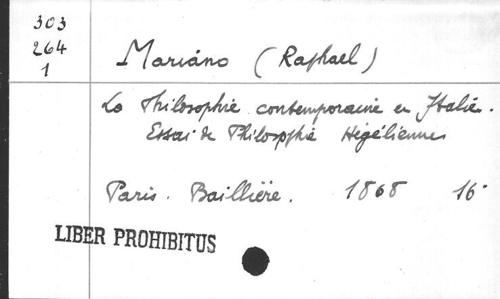 303
264
1
Mariáno (Raphael)
La Philosophie contemporaine en Italie.
Essai de Philosophie Hégélienne
Paris. Baillière. 1868 16°
LIBER PROHIBITUS